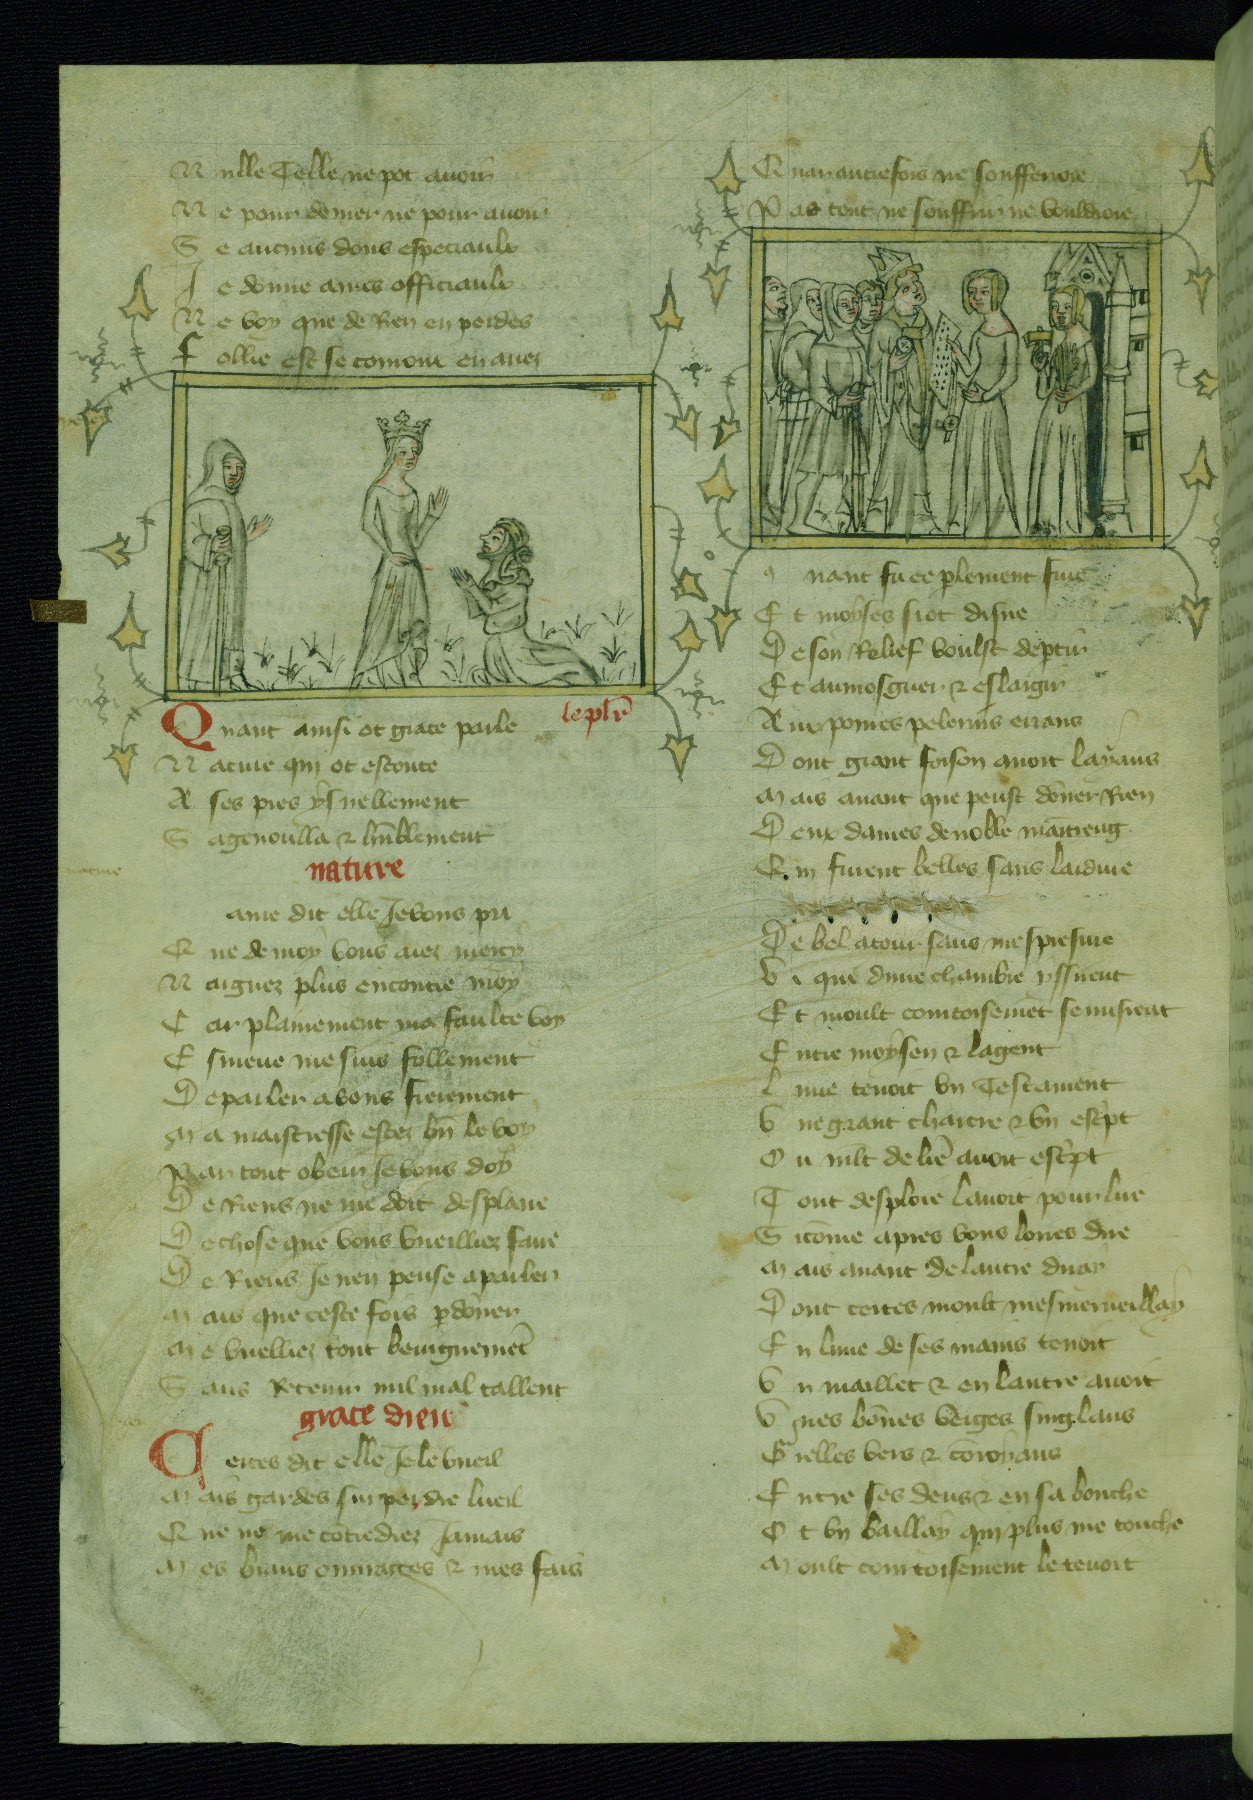 N ulle Telle ne pot avoir
N e pour doner ne pour avoir
S e aucuns dons especiaulx
J e donne a mes officiaulx
N e voy que de Rien en perdes
f ollie est se comoue en avez
le pl̃r
Q uant ainsi ot grace parle
N ature qui ot escoute
A ses pies ysnellement
S agenoulla & hũblement
nature
ame dit elle Je vous pri
Q ue de moy vous aiez mercy
N aiguez plus encontre moy
C ar plainement ma faulte voy
E smeue me suis follement
D e parler a vous fierement
M a maistresse estez bñ le voy
P ar tout obeir Je vous doy
D e Riens ne me doit desplaire
D e chose que vous vueilliez faire
D e Riens Je nen pense a parler
M ais que ceste fois p̱doner
M e vuelliez tout benignemẽt
S ans Retenir nul mal tallent
grace dieu
C ertes dit elle Je le vueil
M ais gardes sur perdre lueil
Q ue ne me cõtrediez Jamais
M es biaus ouvraiges & mes fais
Q uar autrefois ne soufferroie
P as tout ne souffrir ne vouldroie
q uant fu ce p̱lement fine
E t moyses si ot disne
D e son Relief voulst dep̱tir
E t aumosguer & eslargir
A ux povres pelerins errans
D ont grant foison avoit layans
M ais avant que peust dõner Rien
D eux dames de noble mãtieng
Q ui furent belles sans laidure
D e bel atour sans mespresure
V i que dune chambre yssirent
E t moult courtoisemẽt se misrent
E ntre moysen & lagent
l une tenoit vn Testament
V ne grant chartre & vn esc̃pt
O u mlt de liẽ avoit esc̃pt
T out desploie lavoit pour lire
S i cõme apres vous lorres dire
M ais avant de lautre diray
D ont certes moult mesmerveillay
E n lune de ses mains tenoit
V n maillet & en lautre avoit
V gnes bõnes verges singlans
G rielles vers & cõroyans
E ntre ses dens & en sa bouche
O t vn baillay qui plus me touche
M oult courtoisement le tenoit